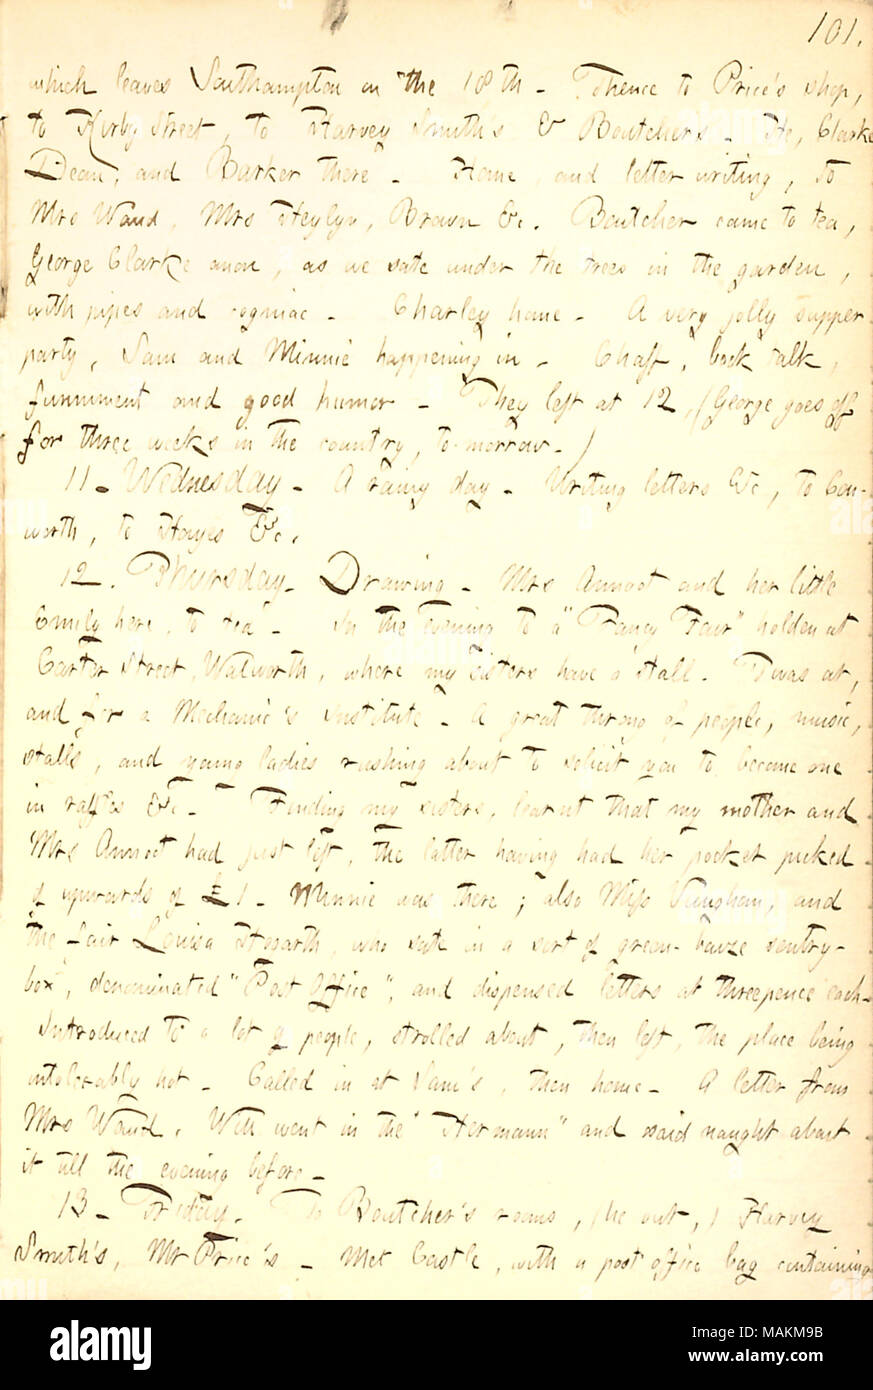 101.
which leaves Southampton on the 18th - Thence to Price's shop,
to Kirby Street, to Harvey Smith's & Boutchers - He, Clarke
Dean, and Barker there - Home, and letter writing, to
Mrs Waud, Mrs Heylyn, Brown &c. Boutcher came to tea,
George Clarke anon, as we sate under the trees in the garden,
with pipes and cogniac - Charley home - A very jolly supper
party, Sam and Minnie happening in - Chaff, book talk,
funniment and good humor - They left at 12, (George goes off
for three weeks in the country, to-morrow -)
11 - Wednesday - A rainy day - Writing letters &c, to Con-
worth, to Hayes &c.
12. Thursday - Drawing - Mrs Annoot and her little
Emily here, to tea - In the evening to a "Fancy Fair" holden at
Carter Street, Walworth, where my sisters have a stall. Twas at,
and for a Mechanic's Institute - A great throng of people, music,
stalls, and young ladies rushing about to solicit you to become one
in raffles &c - Finding my sisters, learnt that my mother and
Mrs Annoot had just left, the latter having had her pocket picked
of upwards of £1 - Minnie was there; also Miss Vaughan, and
the fair Louisa Hogarth, who sate in a sort of green-bauze sentry-
box, denominated "Post Office", and dispensed letters at threepence each -
Introduced to a lot of people, strolled about, then left, the place being
intolerably hot - Called in at Sam's, then home - A letter from
Mrs Waud. Will went in the "Hermann" and said naught about
it till the evening before -
13 - Friday. To Boutcher's rooms, (he out,) Harvey
Smith's, Mr Price's - Met Castle, with a post office bag containing
alamy
Image ID: MAKM9B
www.alamy.com